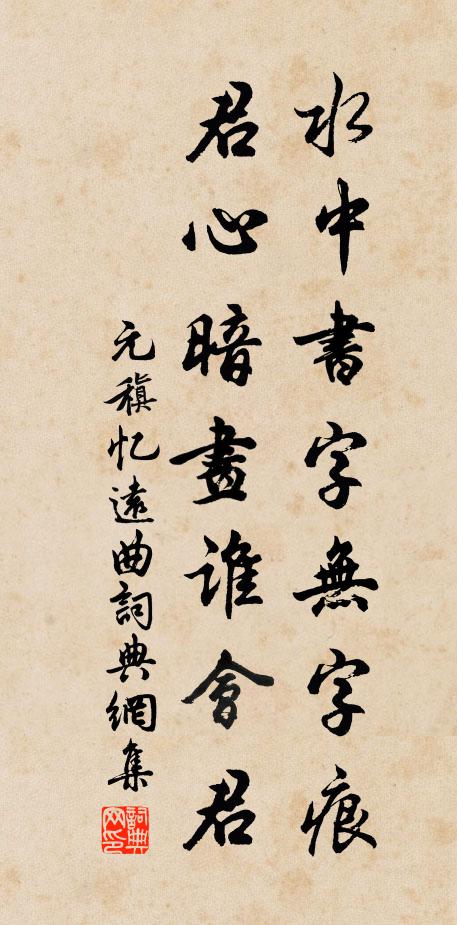 水中書字無字痕
君心暗畫誰會君
元稹忆遠曲詞典網集
詞典网印